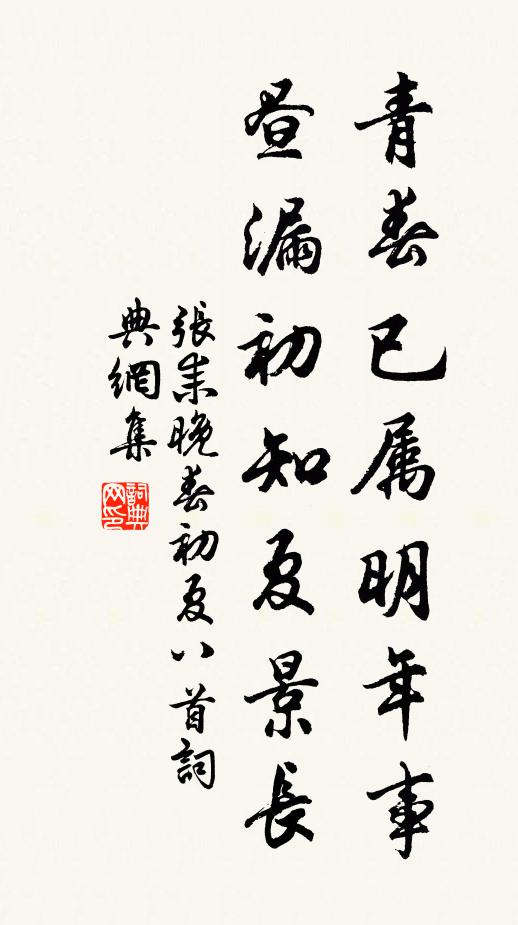 青春已属明年事
昼漏初知夏景長
張耒晚春初夏八首詞
典網集
詞典
网印